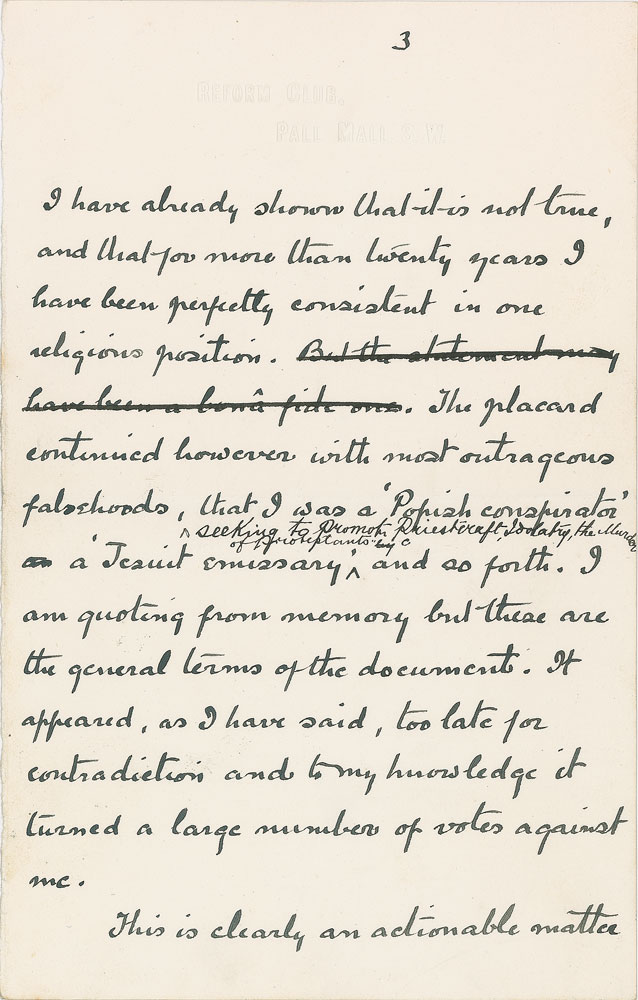 3
REFORM CLUB.
PALL MALL S.W.
I have already shown that it is not true,
and that for more than twenty years I
have been perfectly consistent in one
religious position. But the statement may
have been a bonâ fide one. The placard
continued however with most outrageous
falsehoods, that I was a 'Popish conspirator'
seeking to promote Priestcraft Idolatry, the Murder
of Protestants
a 'Jesuit emissary' and so forth. I
am quoting from memory but these are
the general terms of the document. It
appeared, as I have said, too late for
contradiction and to my knowledge it
turned a large number of votes against
me.
This is clearly an actionable matter